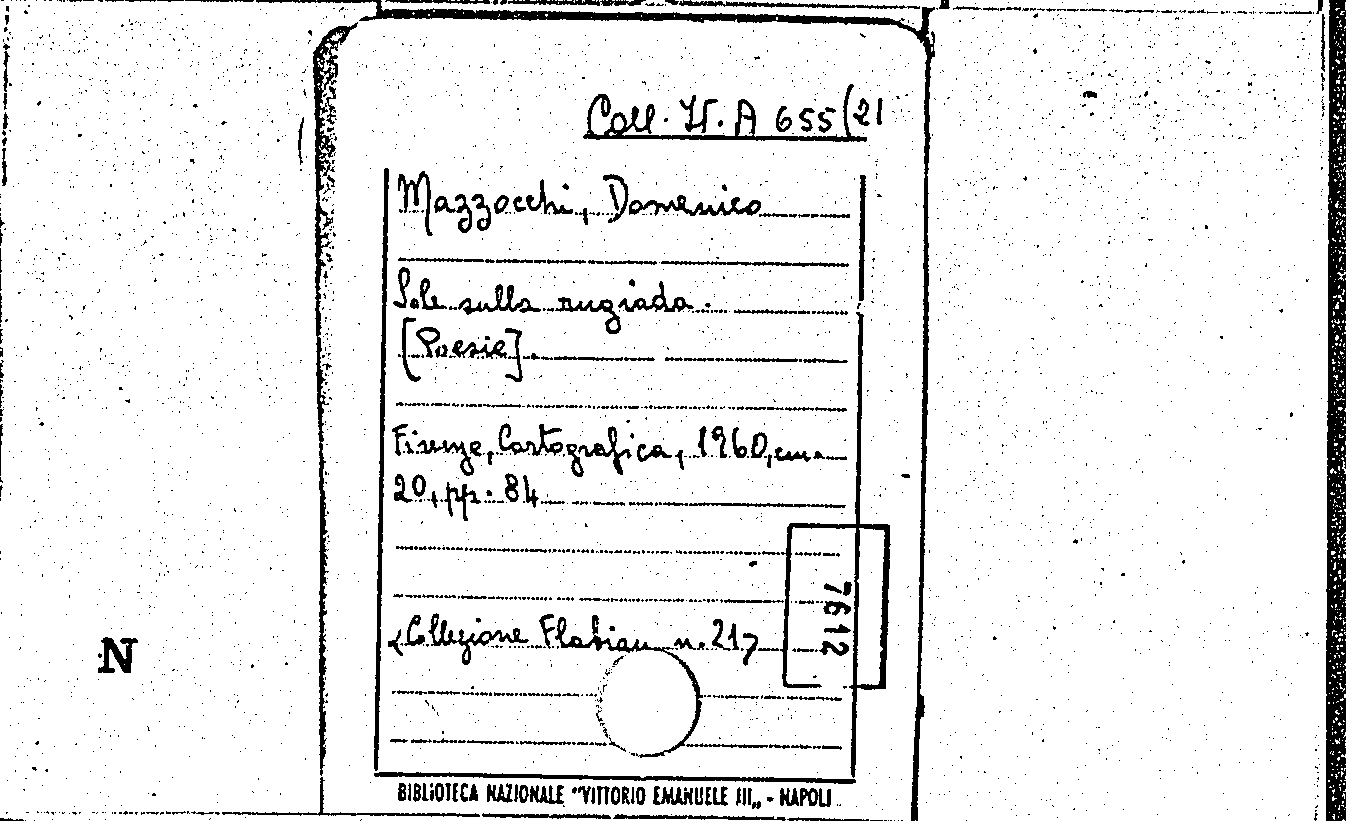 Coll. It. A 655(21
Mazzocchi, Domenico
Sole sulla rugiada.
[Poesie].
Firenze, Cartografica, 1960, cm.
20, pp. 84
7612
<Collezione Flabian n. 21>
N
BIBLIOTECA NAZIONALE "VITTORIO EMANUELE III„ - NAPOLI